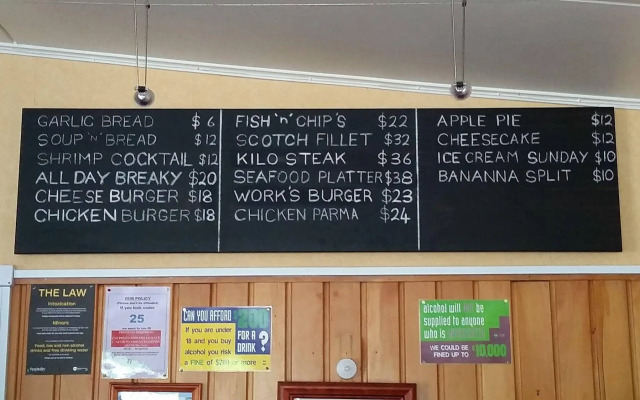 GARLIC BREAD $6
SOUP 'n' BREAD $12
SHRIMP COCKTAIL $12
ALL DAY BREAKY $20
CHEESE BURGER $18
CHICKEN BURGER $18
FISH 'n' CHIP'S $22
SCOTCH FILLET $32
KILO STEAK $36
SEAFOOD PLATTER $38
WORK'S BURGER $23
CHICKEN PARMA $24
APPLE PIE $12
CHEESECAKE $12
ICE CREAM SUNDAY $10
BANANNA SPLIT $10
THE LAW
Intoxication
Minors
Food, low and non alcohol
drinks and free drinking water
OUR POLICY
If you look under
25
CAN YOU AFFORD
FOR A
DRINK ?
If you are under
18 and you buy
alcohol you risk
a FINE of $200 or more
alcohol will be
supplied to anyone
who is
WE COULD BE
FINED UP TO $10,000